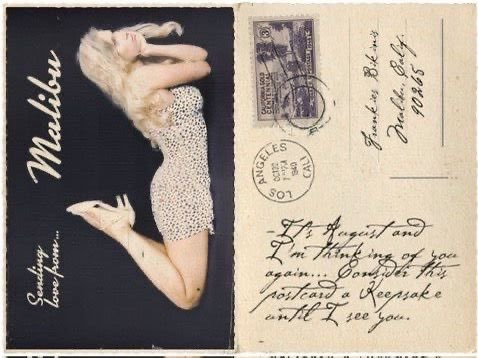 Sending
love from...
Malibu
CALIFORNIA GOLD
CENTENNIAL
3¢
LOS ANGELES
CALI
OCT 20
1940
Frankies Bikinis
Malibu Caly.
90265
-It's August and
I'm thinking of you
again... Consider this
postcard a Keepsake
until I see you.